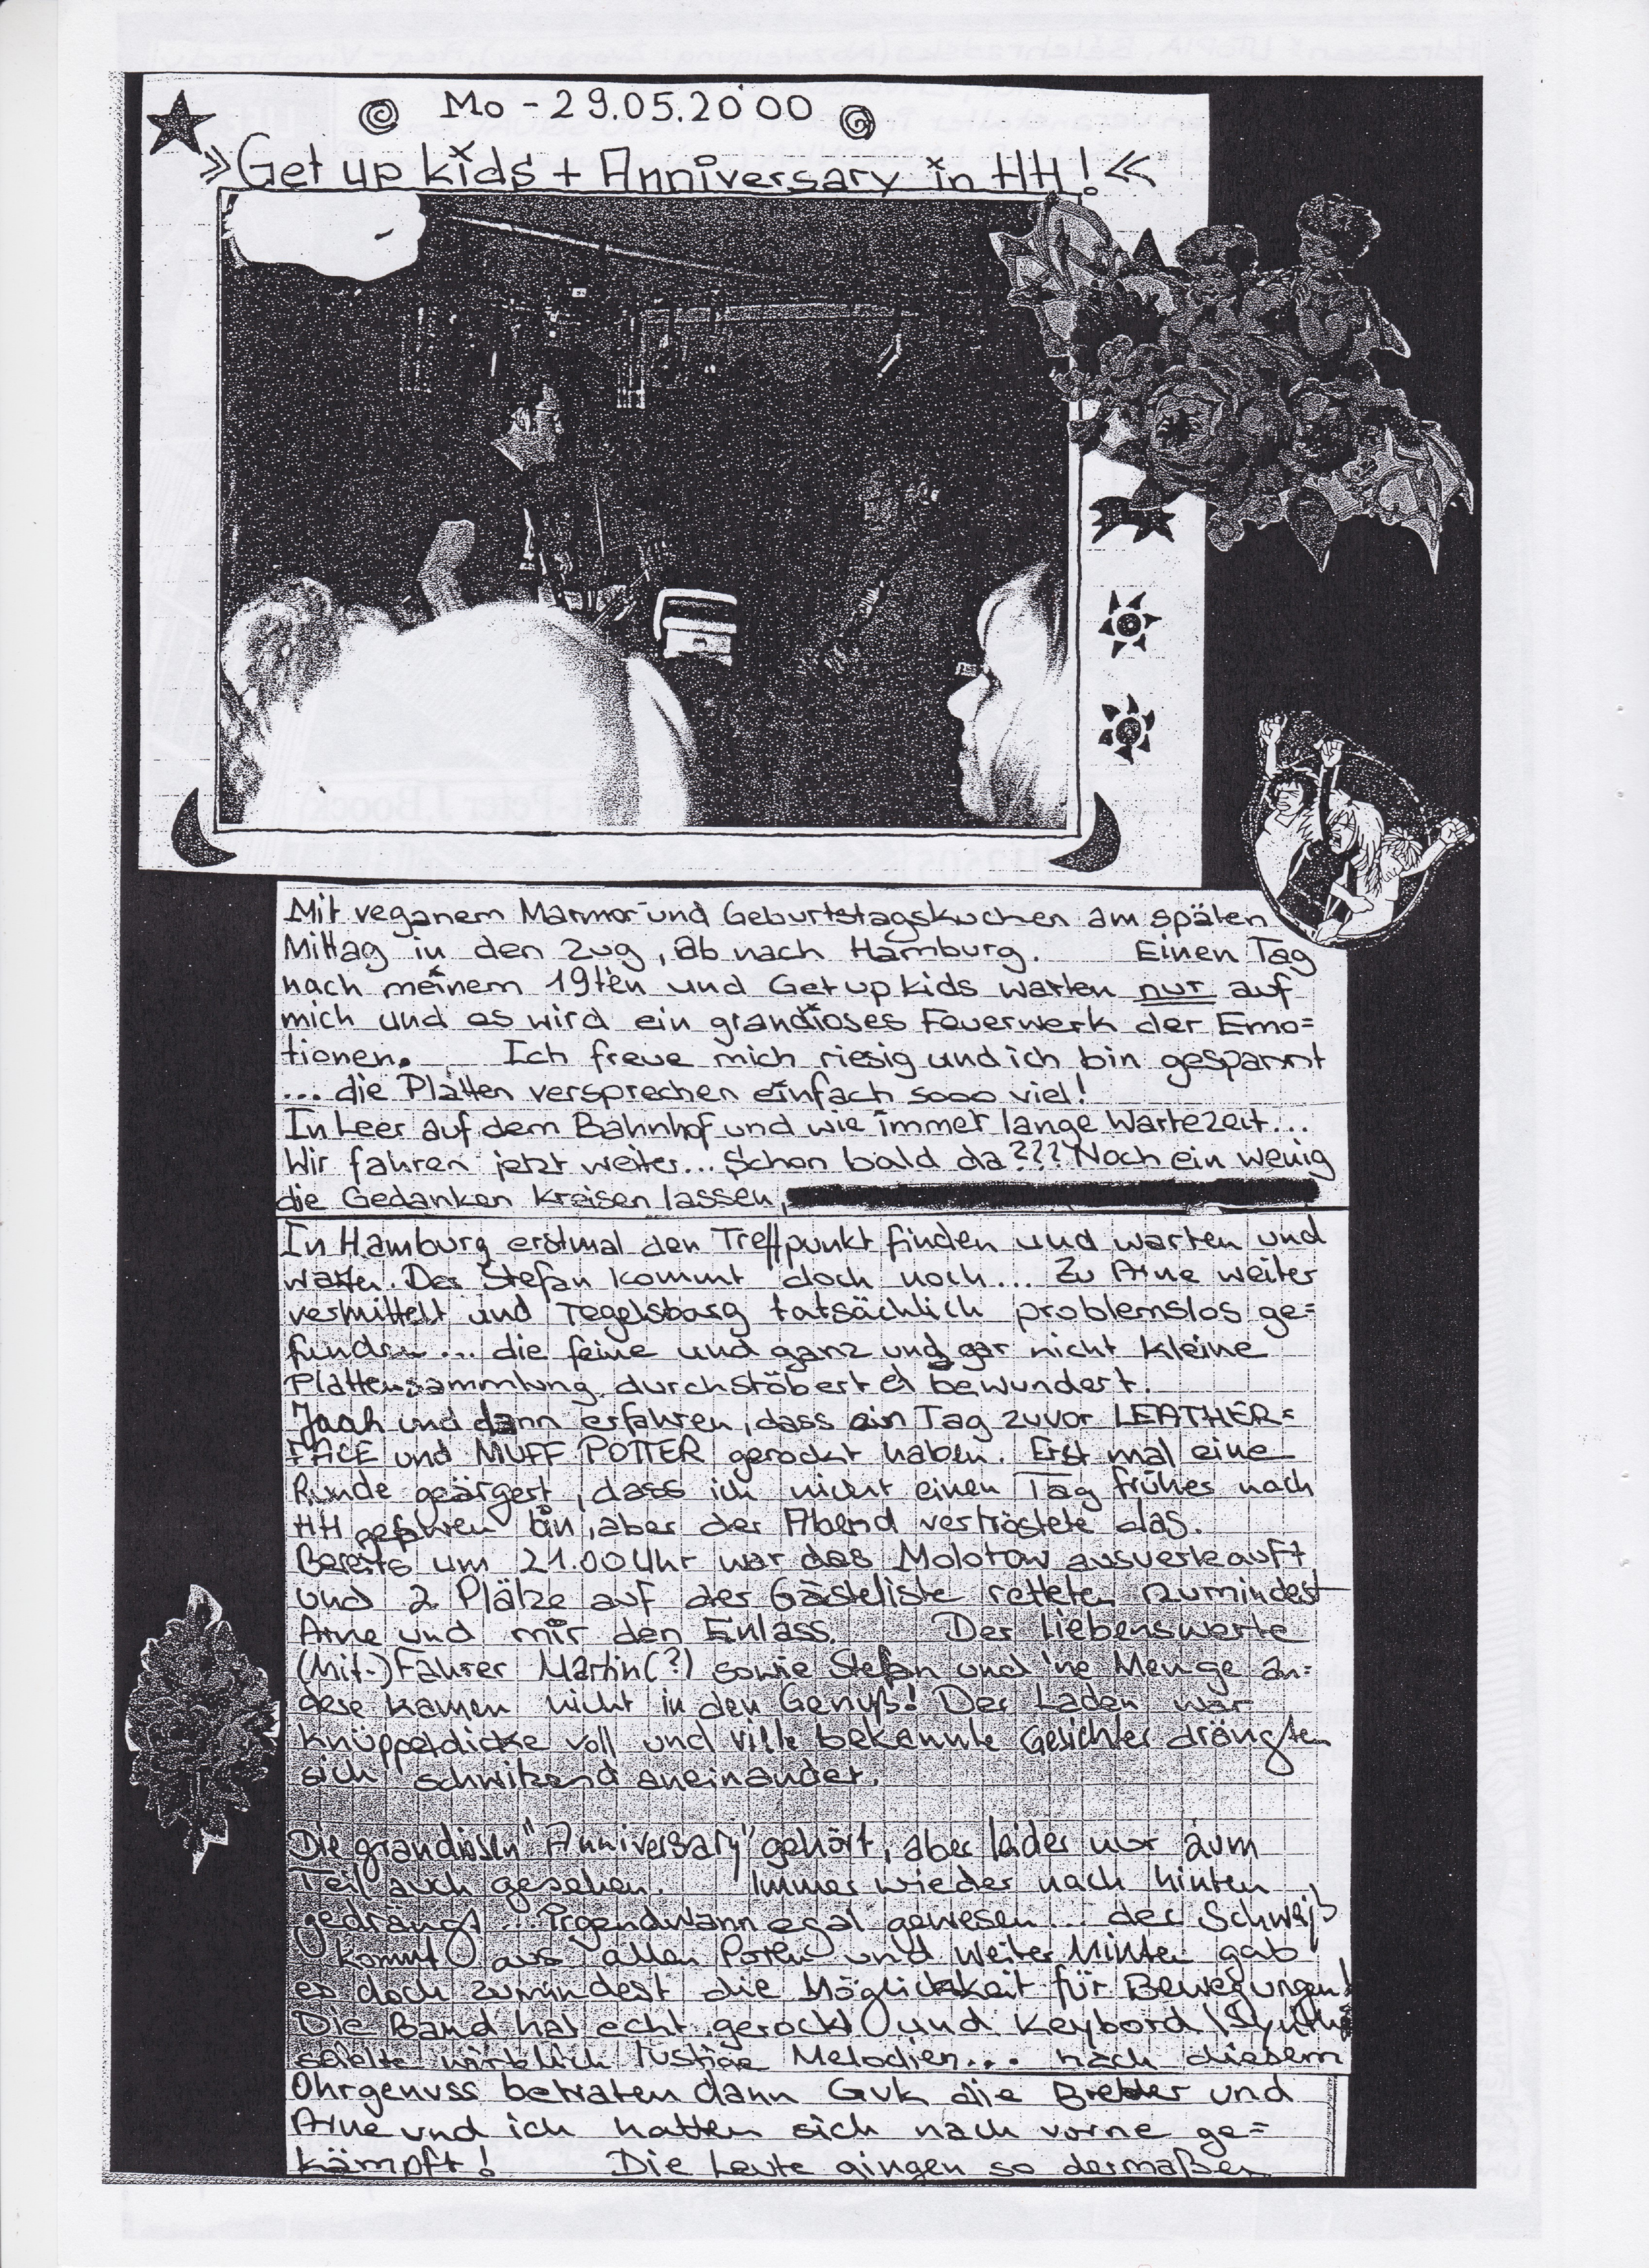 Mo - 29.05.2000
»Get up kids + Anniversary in HH!«
Mit veganem Marmor- und Geburtstagskuchen am späten
Mittag in den Zug, ab nach Hamburg. Einen Tag
nach meinem 19ten und Get up kids warten nur auf
mich und es wird ein grandioses Feuerwerk der Emo=
tionen. Ich freue mich riesig und ich bin gespannt
... die Platten versprechen einfach sooo viel!
In Leer auf dem Bahnhof und wie immer lange Wartezeit...
Wir fahren jetzt weiter... Schon bald da??? Noch ein wenig
die Gedanken kreisen lassen,
In Hamburg erstmal den Treffpunkt finden und warten und
warten. Der Stefan kommt doch noch... Zu Arne weiter
vermittelt und Tegelsbarg tatsächlich problemslos ge=
funden... die feine und ganz und gar nicht kleine
Plattensammlung durchstöbert & bewundert.
Jaah und dann erfahren, dass ein Tag zuvor LEATHER=
FACE und MUFF POTTER gerockt haben. Erst mal eine
Runde geärgert, dass ich nicht einen Tag früher nach
HH gefahren bin, aber der Abend vertröstete das.
Bereits um 21.00 Uhr war das Molotow ausverkauft
und 2 Plätze auf der Gästeliste retteten zumindest
Arne und mir den Einlass. Der liebenswerte
(Mit-)Fahrer Martin(?) sowie Stefan und 'ne Menge an=
dere kamen nicht in den Genuß! Der Laden war
knüppeldicke voll und viele bekannte Gesichter drängten
sich schwitzend aneinander.
Die grandiosen "Anniversary" gehört, aber leider nur zum
Teil auch gesehen. Immer wieder nach hinten
gedrängt... Irgendwann egal gewesen... der Schweiß
kommt aus allen Poren und weiter hinten gab
es doch zumindest die Möglichkeit für Bewegungen!
Die Band hat echt gerockt und Keybord/Synthi
spielte wirklich lustige Melodien... nach diesem
Ohrgenuss betraten dann Guk die Bretter und
Arne und ich hatten sich nach vorne ge=
kämpft! Die Leute gingen so dermaßen